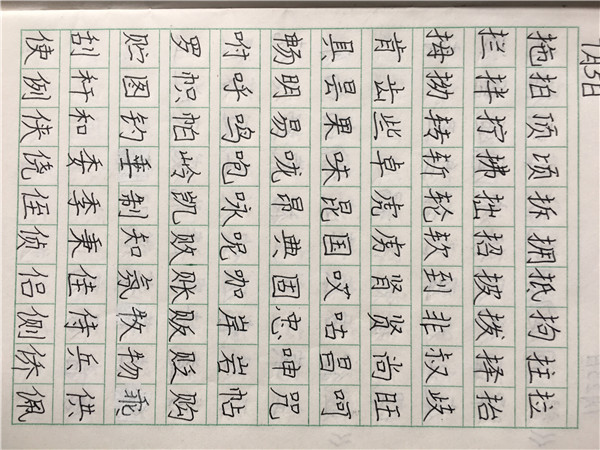 7月5日
拖拍顶顷拆拥抵拘拄拉
拦拌拧拂拙招披拨择抬
拇拗转斩轮软到非叔歧
肯齿些卓虎虏肾贤尚旺
具昙果味昆国哎咕昌呵
畅明易咙昂典固忠呻咒
咐呼鸣咆咏呢咖岸岩帖
罗帜帕岭凯败账贩贬购
贮图钓垂制知氛牧物乖
刮秆和委季秉佳侍兵供
使例侠侥侄侦侣侧侨佩